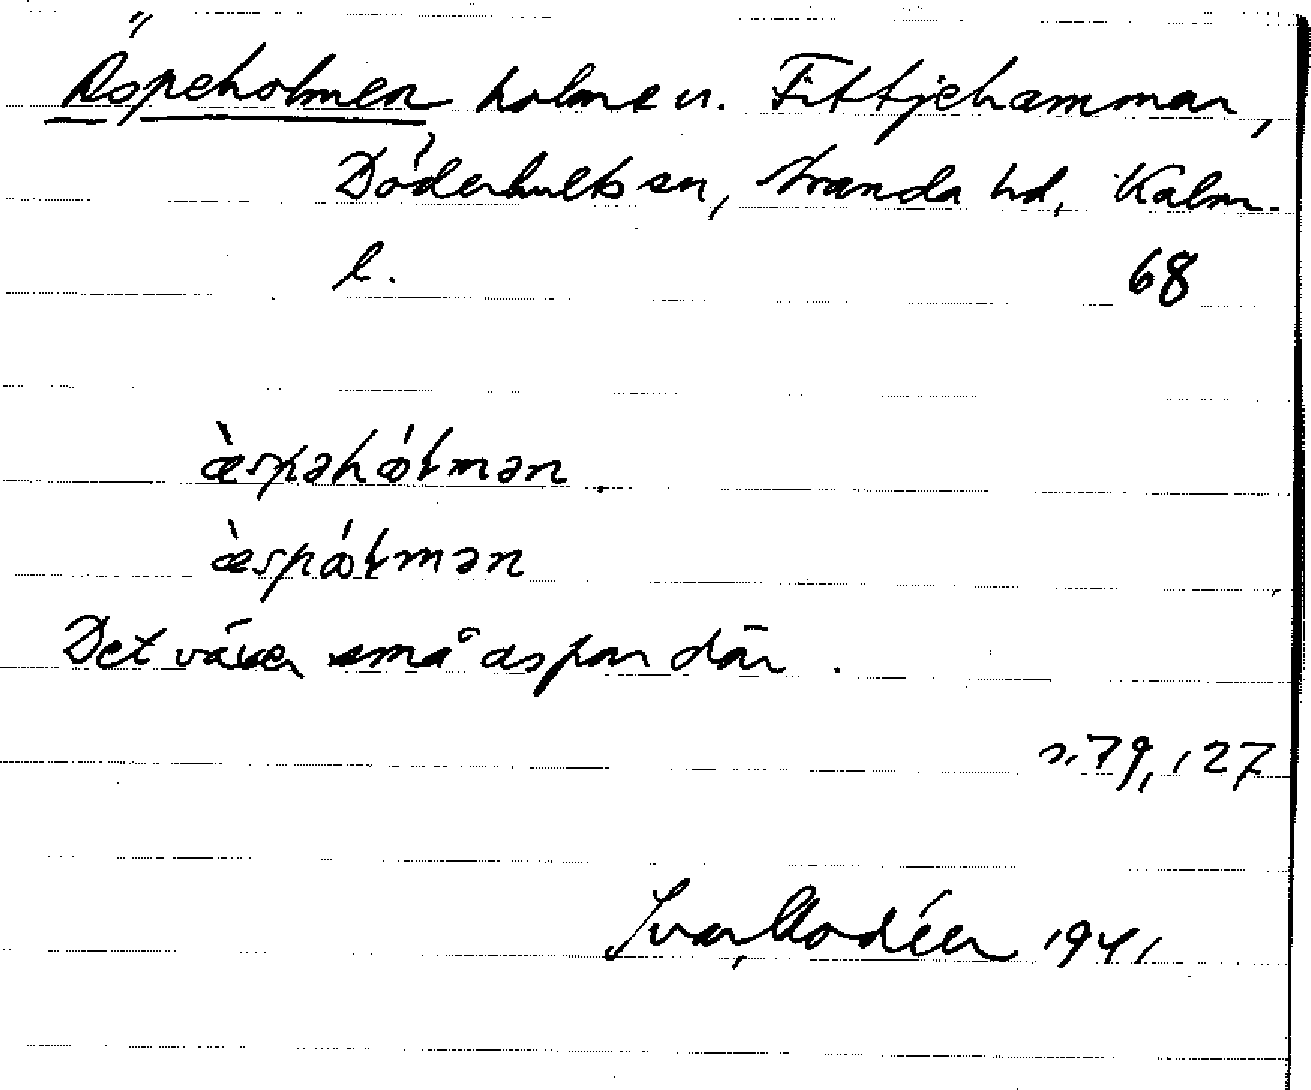 Äspeholmen holme v. Fittjehammar,
Döderhults sn, Stranda hd, Kalm.
l. 68
æ̀spəhó̤ɫmən.
æ̀spó̤ɫmən
Det växer små aspar där.
s. 79, 127
Ivar Modéer 1941